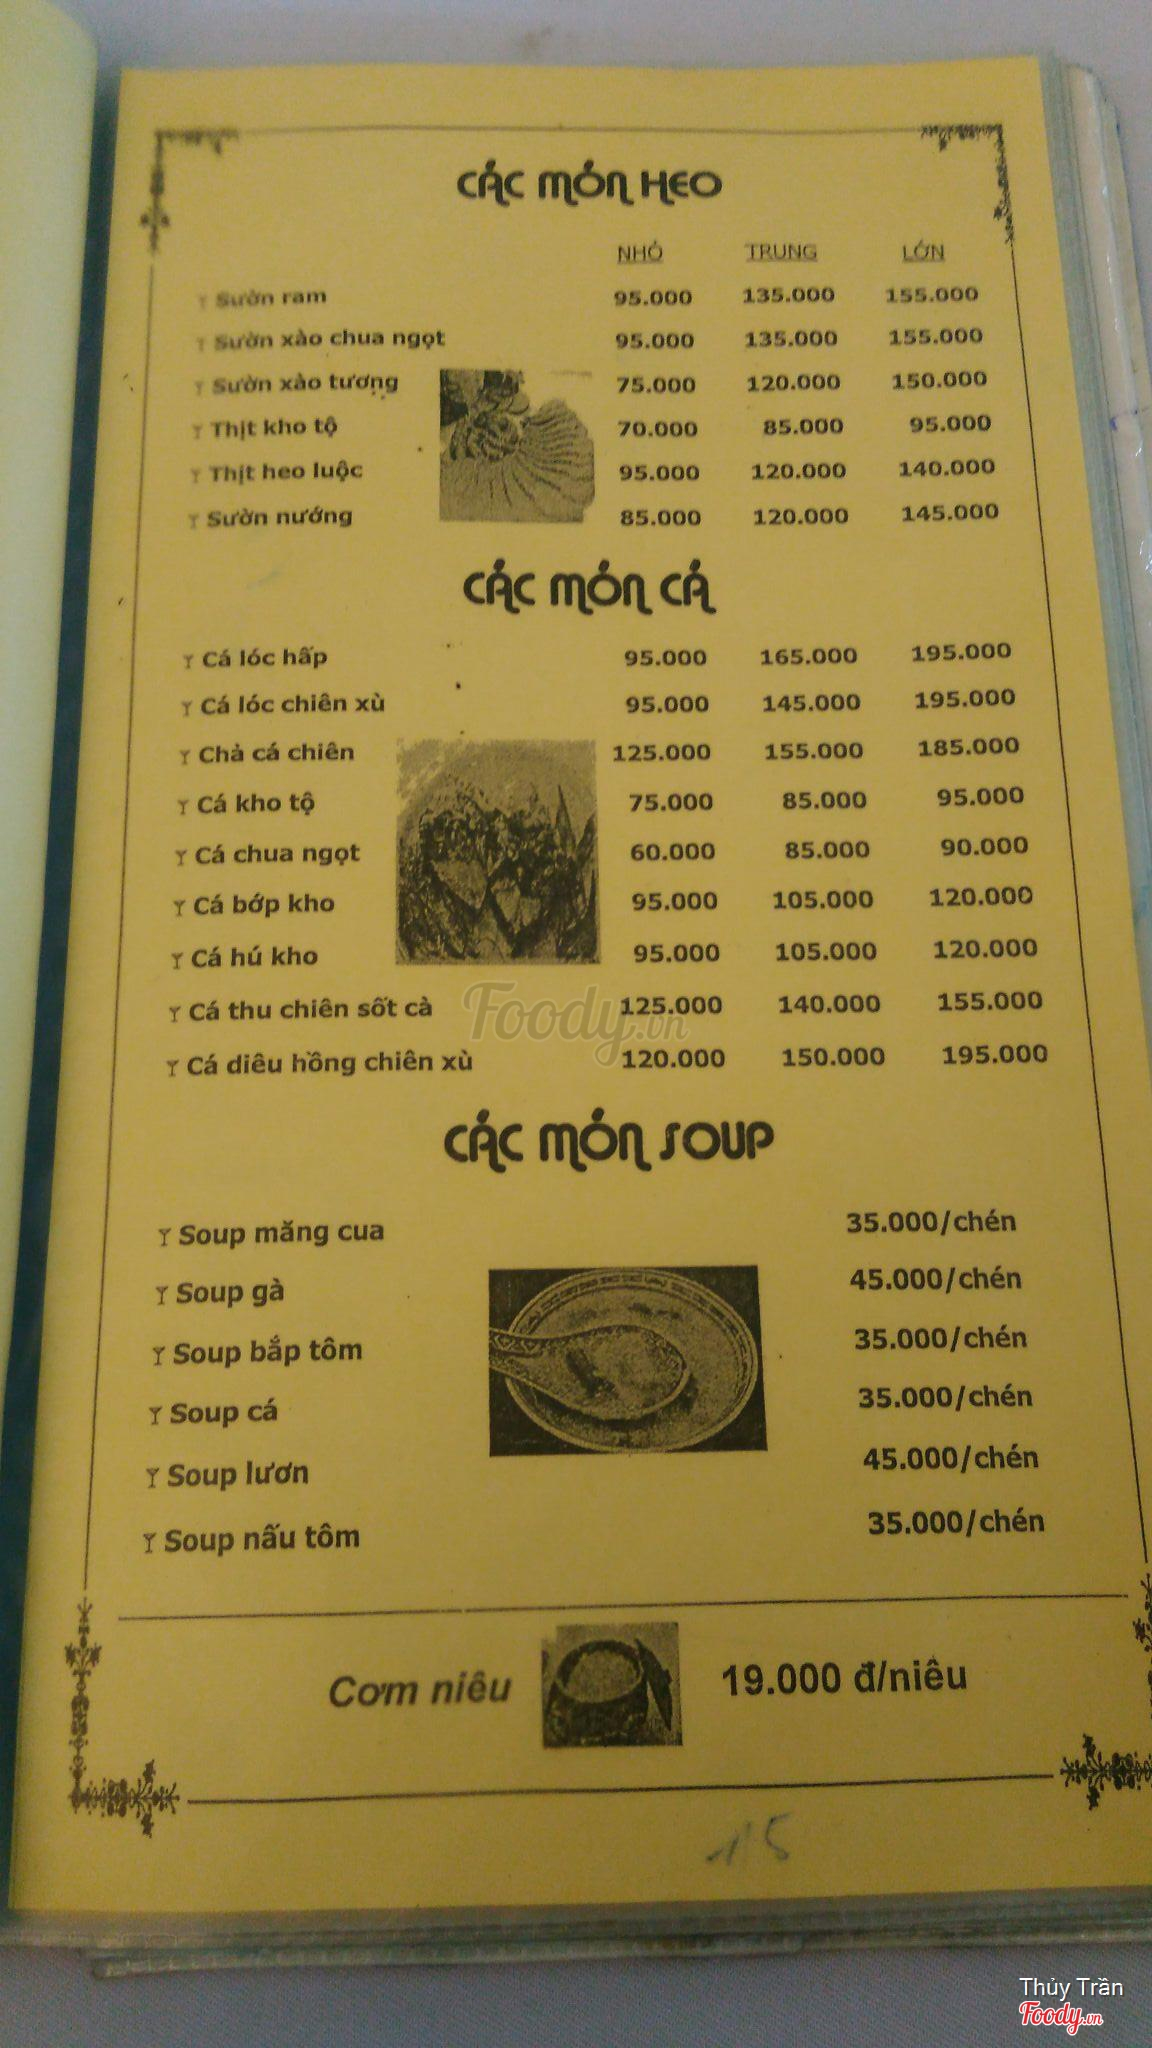 CÁC MÓN HEO
NHỎ TRUNG LỚN
Sườn ram 95.000 135.000 155.000
Sườn xào chua ngọt 95.000 135.000 155.000
Sườn xào tương 75.000 120.000 150.000
Thịt kho tộ 70.000 85.000 95.000
Thịt heo luộc 95.000 120.000 140.000
Sườn nướng 85.000 120.000 145.000
CÁC MÓN CÁ
Cá lóc hấp 95.000 165.000 195.000
Cá lóc chiên xù 95.000 145.000 195.000
Chả cá chiên 125.000 155.000 185.000
Cá kho tộ 75.000 85.000 95.000
Cá chua ngọt 60.000 85.000 90.000
Cá bớp kho 95.000 105.000 120.000
Cá hú kho 95.000 105.000 120.000
Cá thu chiên sốt cà 125.000 140.000 155.000
Foody.vn
Cá diêu hồng chiên xù 120.000 150.000 195.000
CÁC MÓN SOUP
Soup măng cua 35.000/chén
Soup gà 45.000/chén
Soup bắp tôm 35.000/chén
Soup cá 35.000/chén
Soup lươn 45.000/chén
Soup nấu tôm 35.000/chén
Cơm niêu 19.000 đ/niêu
15
Thủy Trần
Foody.vn